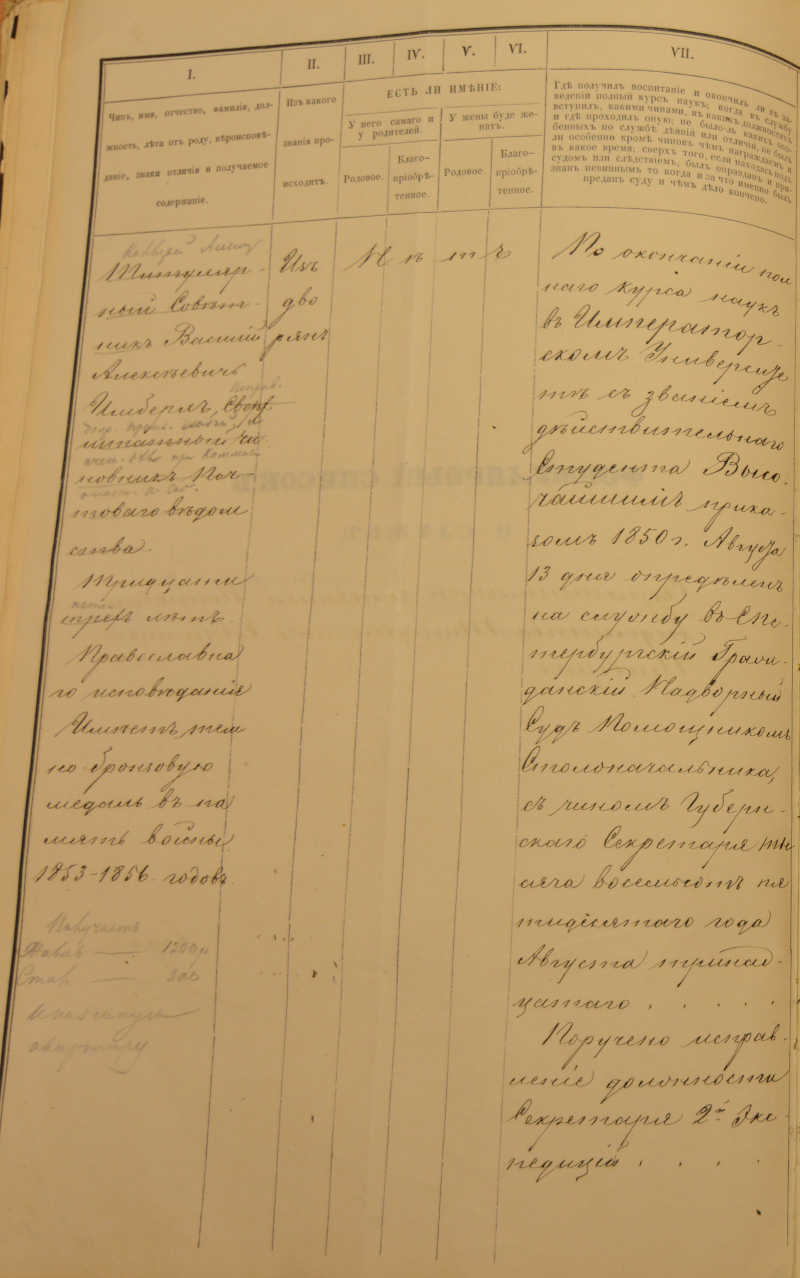 I.
II.
III.
IV.
V.
VI.
VII.
Чинъ, имя, отчество, фамилія, дол-
жность, лѣта отъ роду, вѣроисповѣ-
даніе, знаки отличія и получаемое
содержаніе.
Изъ какого
званія про-
исходитъ.
ЕСТЬ ЛИ ИМѢНІЕ:
У него самаго и
у родителей.
У жены буде же-
натъ.
Родовое.
Благо-
пріобрѣ-
тенное.
Родовое.
Благо-
пріобрѣ-
тенное.
Гдѣ получилъ воспитаніе и окончилъ ли въ за-
веденіи полный курсъ наукъ; когда въ службу
вступилъ, какими чинами, въ какихъ должностяхъ
и гдѣ проходилъ оную; не было-ль какихъ осо-
бенныхъ по службѣ дѣяній или отличій; не былъ
ли особенно кромѣ чиновъ чѣмъ награждаемъ и
въ какое время; сверхъ того, если находясь подъ
судомъ или слѣдствіемъ, былъ оправданъ и при-
знанъ невиннымъ то когда и за что именно былъ
преданъ суду и чѣмъ дѣло кончено.
Титуляр-
ный Совѣт-
никъ Василій
Алексѣевичъ
Имберхъ,
новникъ Поч-
товаго вѣдом
ства.
Тридцати
трехъ лѣтъ
Православна
го исповѣданія
Имѣетъ тем
но бронзовую
медаль въ па
мять войны
1853-1856 годовъ
Получаетъ
Жалов. — 1200 р
Стол — 800
и казенную
квартиру
Изъ
дво
рянъ
Нѣтъ
По окончаніи пол
наго курса наукъ
въ Император-
скомъ Университе
тѣ съ званіемъ
дѣйствительнаго
Студента Высо-
чайшимъ прика-
зомъ 1850 г. Августа
13 дня опредѣленъ
на службу въ СПе-
тербургскій Граж-
данскій Надворный
Судъ Помощникомъ
Столоначальника,
съ чиномъ Губерн-
скаго Секретаря ты
сяча восемьсотъ пя
тидесятаго года
Августа тринад-
цатаго . . . . .
Поручено исправ-
леніе должности
Секретаря 2й Экс-
педиціи . . . .